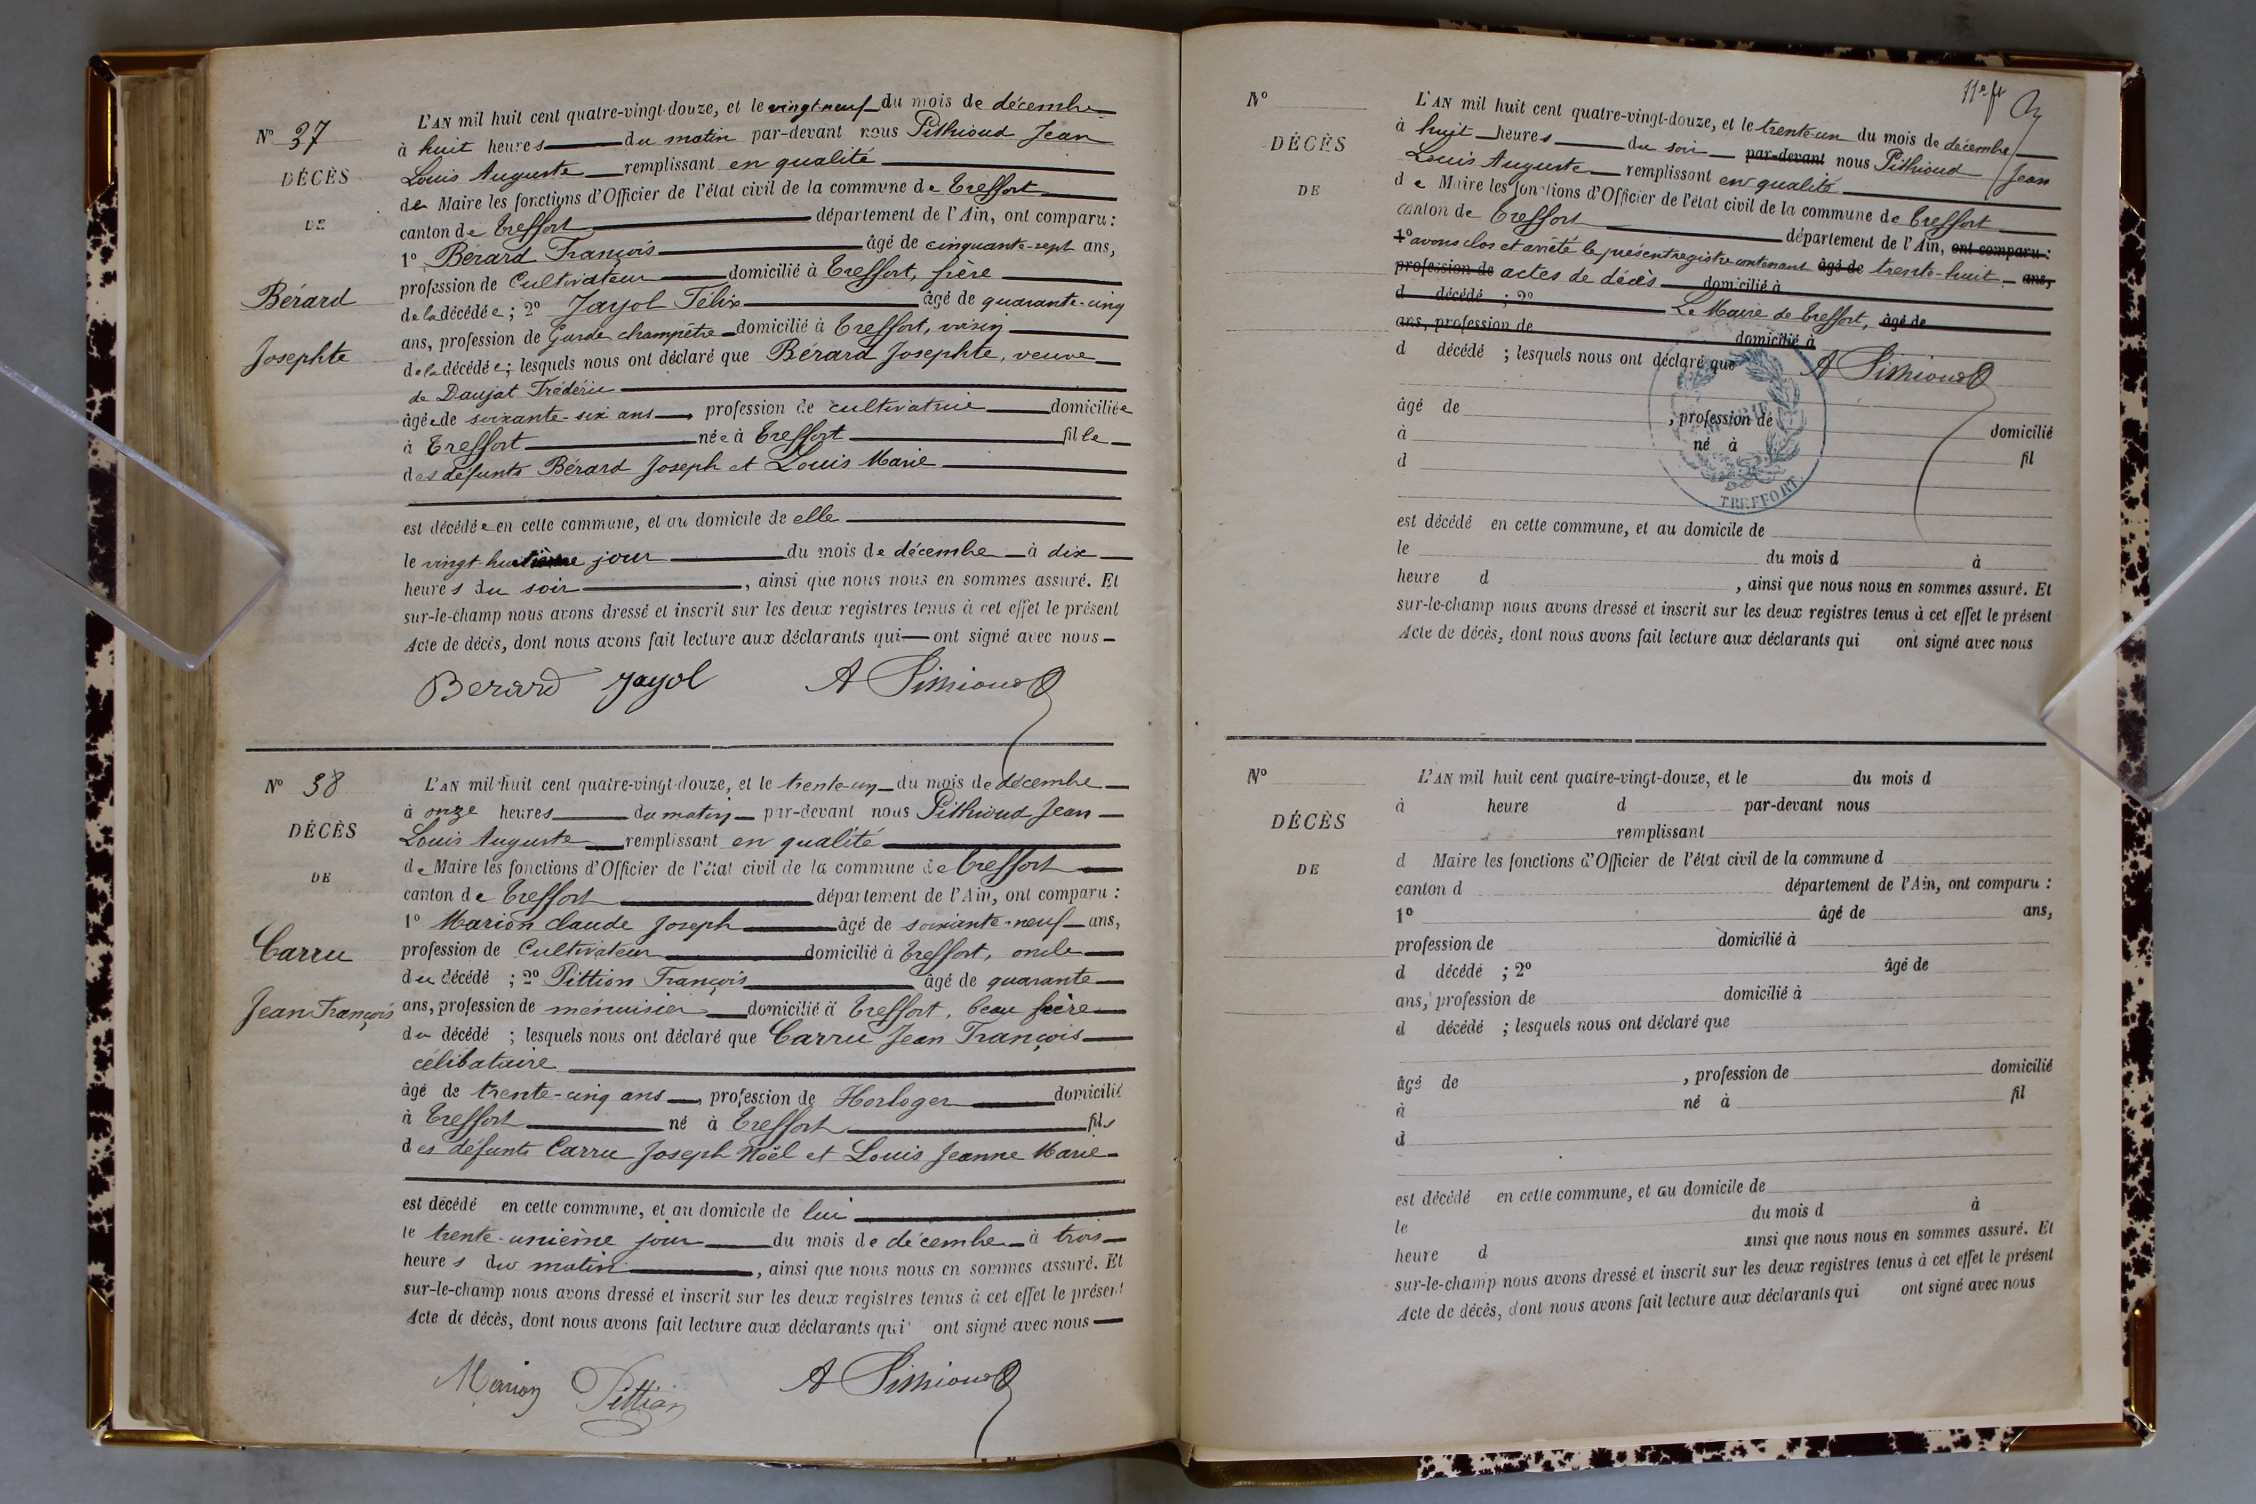 N° 37
DÉCÈS
DE
Bérard
Josephte
L'AN mil huit cent quatre-vingt-douze, et le vingt-neuf du mois de décembre
à huit heures du matin par-devant nous Pithioud Jean
Louis Auguste remplissant en qualité
de Maire les fonctions d'Officier de l'état civil de la commune de Treffort
canton de Treffort département de l'Ain, ont comparu :
1° Bérard François âgé de cinquante-sept ans,
profession de Cultivateur domicilié à Treffort, frère
de la décédée ; 2° Jayol Félix âgé de quarante-cinq
ans, profession de Garde champêtre domicilié à Treffort, voisin
de la décédée ; lesquels nous ont déclaré que Bérard Josephte, veuve
de Daujat Frédéric
âgée de soixante-six ans, profession de cultivatrice domiciliée
à Treffort née à Treffort fille
des défunts Bérard Joseph et Louis Marie
est décédée en cette commune, et au domicile de elle
le vingt-huitième jour du mois de décembre à dix
heures du soir, ainsi que nous nous en sommes assuré. Et
sur-le-champ nous avons dressé et inscrit sur les deux registres tenus à cet effet le présent
Acte de décès, dont nous avons fait lecture aux déclarants qui ont signé avec nous
Berard Jayol A Pithioud
N° 38
DÉCÈS
DE
Carru
Jean François
L'AN mil huit cent quatre-vingt-douze, et le trente-un du mois de décembre
à onze heures du matin par-devant nous Pithioud Jean
Louis Auguste remplissant en qualité
de Maire les fonctions d'Officier de l'état civil de la commune de Treffort
canton de Treffort département de l'Ain, ont comparu :
1° Marion Claude Joseph âgé de soixante-neuf ans,
profession de Cultivateur domicilié à Treffort, oncle
du décédé ; 2° Pittion François âgé de quarante
ans, profession de menuisier domicilié à Treffort, beau frère
du décédé ; lesquels nous ont déclaré que Carru Jean François
célibataire
âgé de trente-cinq ans, profession de Horloger domicilié
à Treffort né à Treffort fils
des défunts Carru Joseph Noël et Louis Jeanne Marie
est décédé en cette commune, et au domicile de lui
le trente-unième jour du mois de décembre à trois
heures du matin, ainsi que nous nous en sommes assuré. Et
sur-le-champ nous avons dressé et inscrit sur les deux registres tenus à cet effet le présent
Acte de décès, dont nous avons fait lecture aux déclarants qui ont signé avec nous
Marion Pittion A Pithioud
N°
DÉCÈS
DE
L'AN mil huit cent quatre-vingt-douze, et le trente-un du mois de décembre
à huit heures du soir par-devant nous Pithioud Jean
Louis Auguste remplissant en qualité
de Maire les fonctions d'Officier de l'état civil de la commune de Treffort
canton de Treffort département de l'Ain, ont comparu :
1° avons clos et arrêté le présent registre contenant âgé de trente-huit ans,
profession de actes de décès domicilié à
d décédé ; 2° Le Maire de Treffort, âgé de
ans, profession de domicilié à
d décédé ; lesquels nous ont déclaré que A Pithioud
âgé de , profession de domicilié
à né à fil
d
TREFFORT
est décédé en cette commune, et au domicile de
le du mois d à
heure d , ainsi que nous nous en sommes assuré. Et
sur-le-champ nous avons dressé et inscrit sur les deux registres tenus à cet effet le présent
Acte de décès, dont nous avons fait lecture aux déclarants qui ont signé avec nous
N°
DÉCÈS
DE
L'AN mil huit cent quatre-vingt-douze, et le du mois d
à heure d par-devant nous
remplissant
d Maire les fonctions d'Officier de l'état civil de la commune d
canton d département de l'Ain, ont comparu :
1° âgé de ans,
profession de domicilié à
d décédé ; 2° âgé de
ans, profession de domicilié à
d décédé ; lesquels nous ont déclaré que
âgé de , profession de domicilié
à né à fil
d
est décédé en cette commune, et au domicile de
le du mois d à
heure d ainsi que nous nous en sommes assuré. Et
sur-le-champ nous avons dressé et inscrit sur les deux registres tenus à cet effet le présent
Acte de décès, dont nous avons fait lecture aux déclarants qui ont signé avec nous